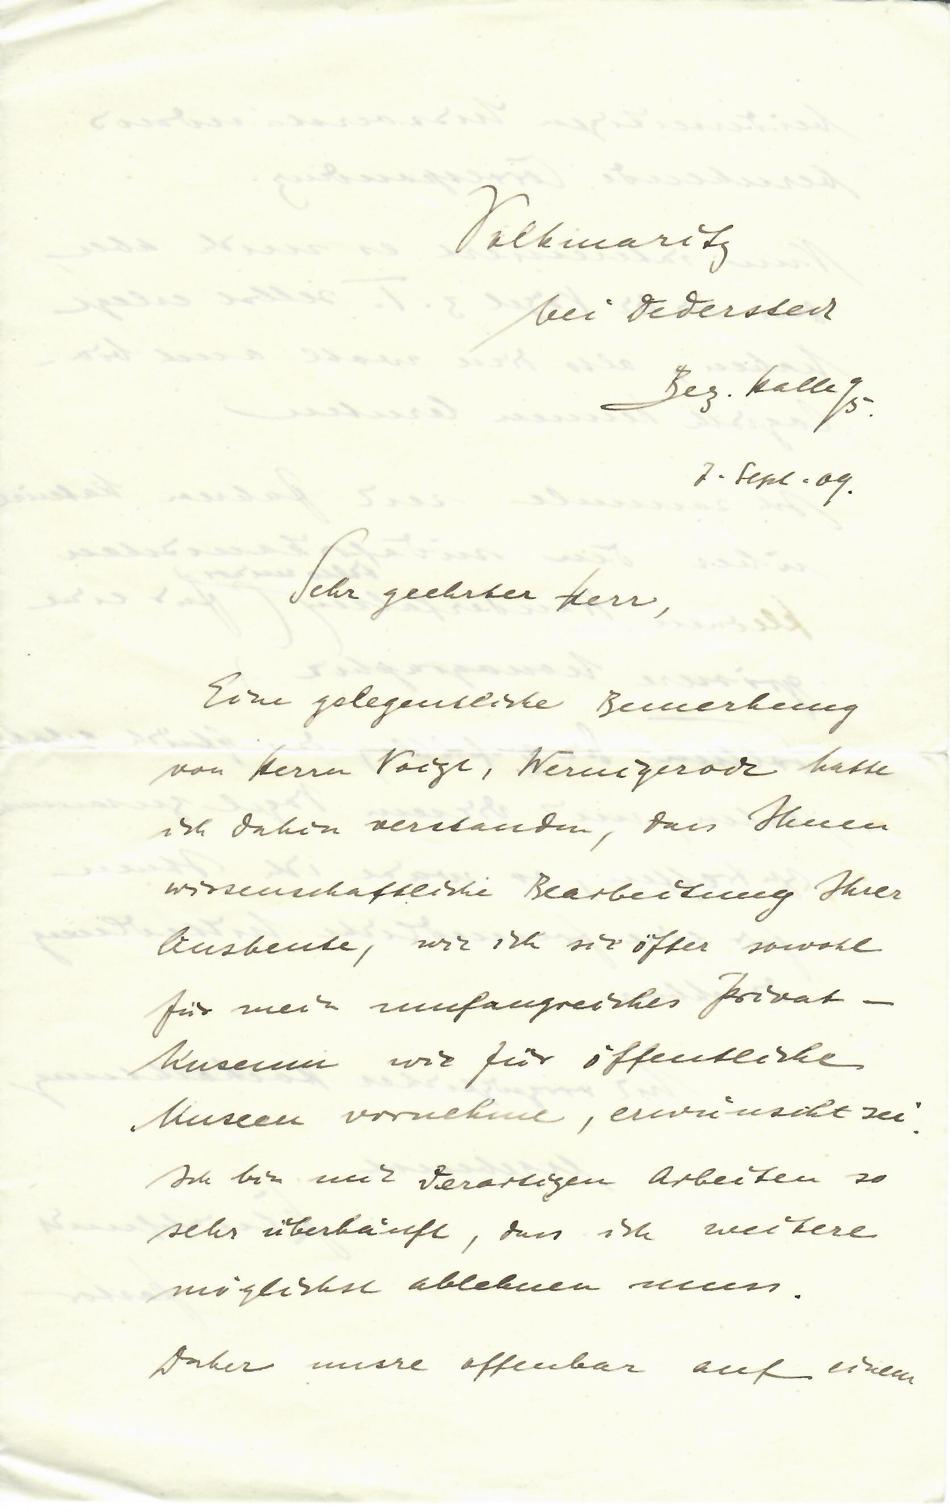 Volkmaritz
bei Dederstedt
Bez. Halle a/S.
7. Sept. 09.
Sehr geehrter Herr,
Eine gelegentliche Bemerkung
von Herrn Voigt, Wernigerode hatte
ich dahin verstanden, dass Ihnen
wissenschaftliche Bearbeitung Ihrer
Ausbeute, wie ich sie öfter sowohl
für mein umfangreiches Privat-
Museum wie für öffentliche
Museen vornehme, erwünscht sei.
Ich bin mit derartigen Arbeiten so
sehr überhäuft, dass ich weitere
möglichst ablehnen muss.
Daher unsre offenbar auf einem